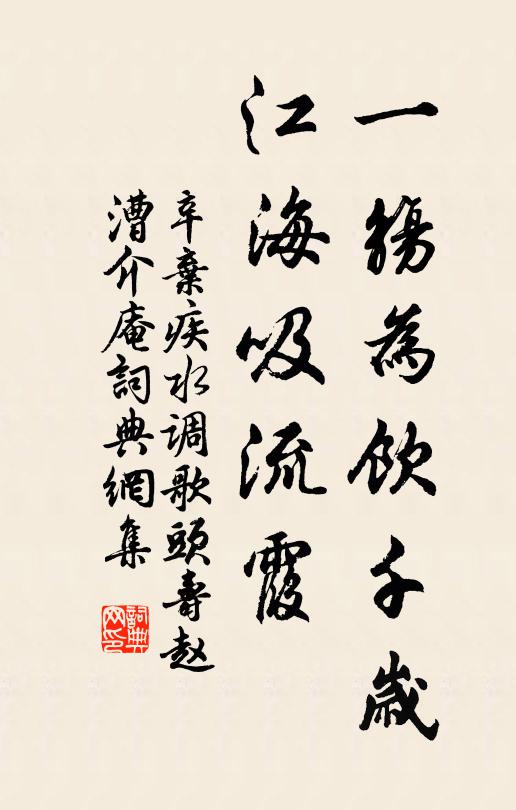 一觴為飲千歲
江海吸流霞
辛棄疾水调歌頭壽赵
漕介庵詞典網集
詞典網印